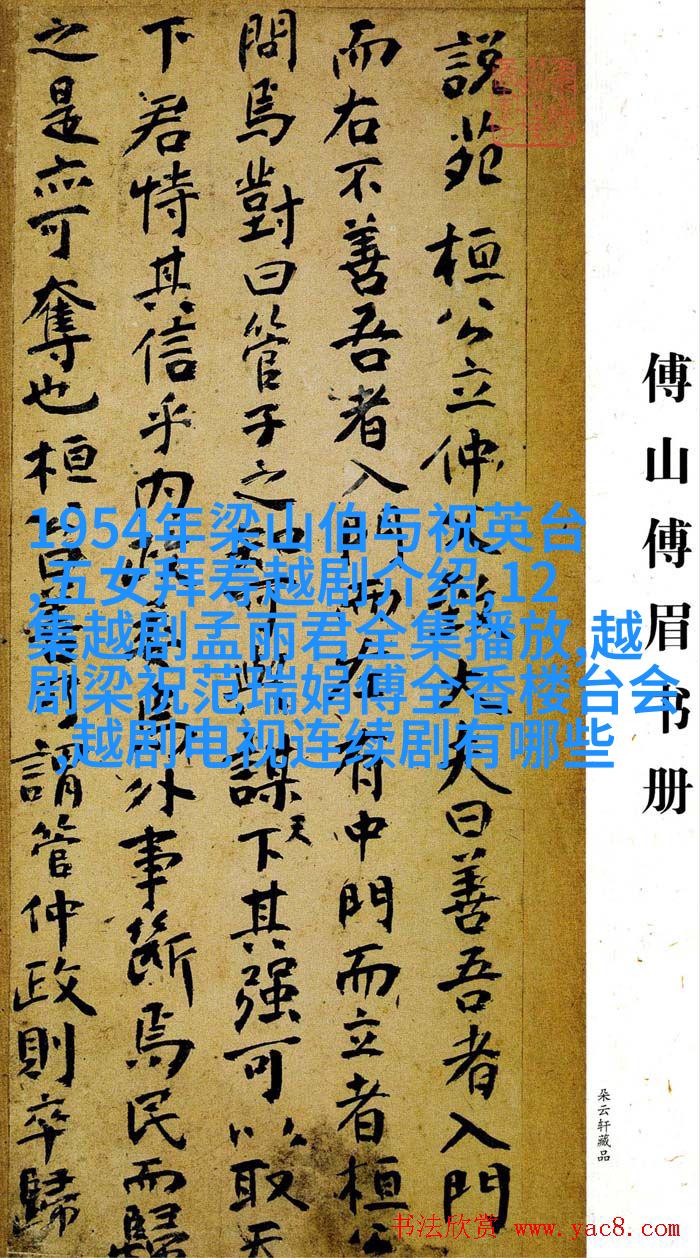 傅山傅眉书册
朵云轩藏品
說苑 桓公立仲大夫曰善吾者入門
而右不善吾者入門而有中門而立者桓公
問焉對曰管子之謀天下其强可以取天
下君恃其信乎内政外事斷焉民而歸
之是亦可奪也桓謂管仲政則卒歸
1954年梁山伯与祝英台
,五女拜寿越剧介绍,12
集越剧孟丽君全集播放,越
剧梁祝范瑞娟傅全香楼台会
,越剧电视连续剧有哪些
书法欣赏 www.yac8.com